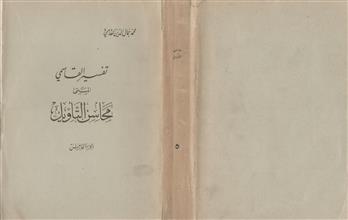 محمد جمال الدين القاسمي
تفسير القاسمي
المسمى
محاسن التأويل
الجزء الخامس
٥